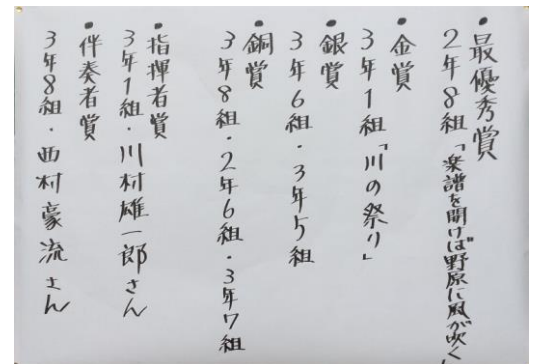 ●最優秀賞
2年8組「楽譜を開けば野原に風が吹く」
●金賞
3年1組「川の祭り」
●銀賞
3年6組・3年5組
●銅賞
3年8組・2年6組・3年7組
●指揮者賞
3年1組・川村雄一郎さん
●伴奏者賞
3年8組・西村豪流さん